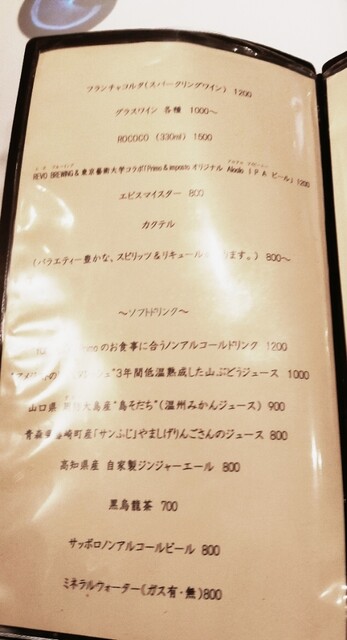 フランチャコルダ(スパークリングワイン) 1200
グラスワイン 各種 1000～
ROCOCO (330ml) 1500
REVO BREWING&東京藝術大学コラボ「Primo & impasto オリジナル I P A ビール」1200
エビスマイスター 800
カクテル
(バラエティー豊かな、スピリッツ&リキュール ます。) 800～
～ソフトドリンク～
のお食事に合うノンアルコールドリンク 1200
"3年間低温熟成した山ぶどうジュース 1000
山口県 大島産"島そだち"(温州みかんジュース) 900
青森 崎町産「サンふじ」やましげりんごさんのジュース 800
高知県産 自家製ジンジャーエール 800
黒烏龍茶 700
サッポロノンアルコールビール 800
ミネラルウォーター(ガス有・無)800